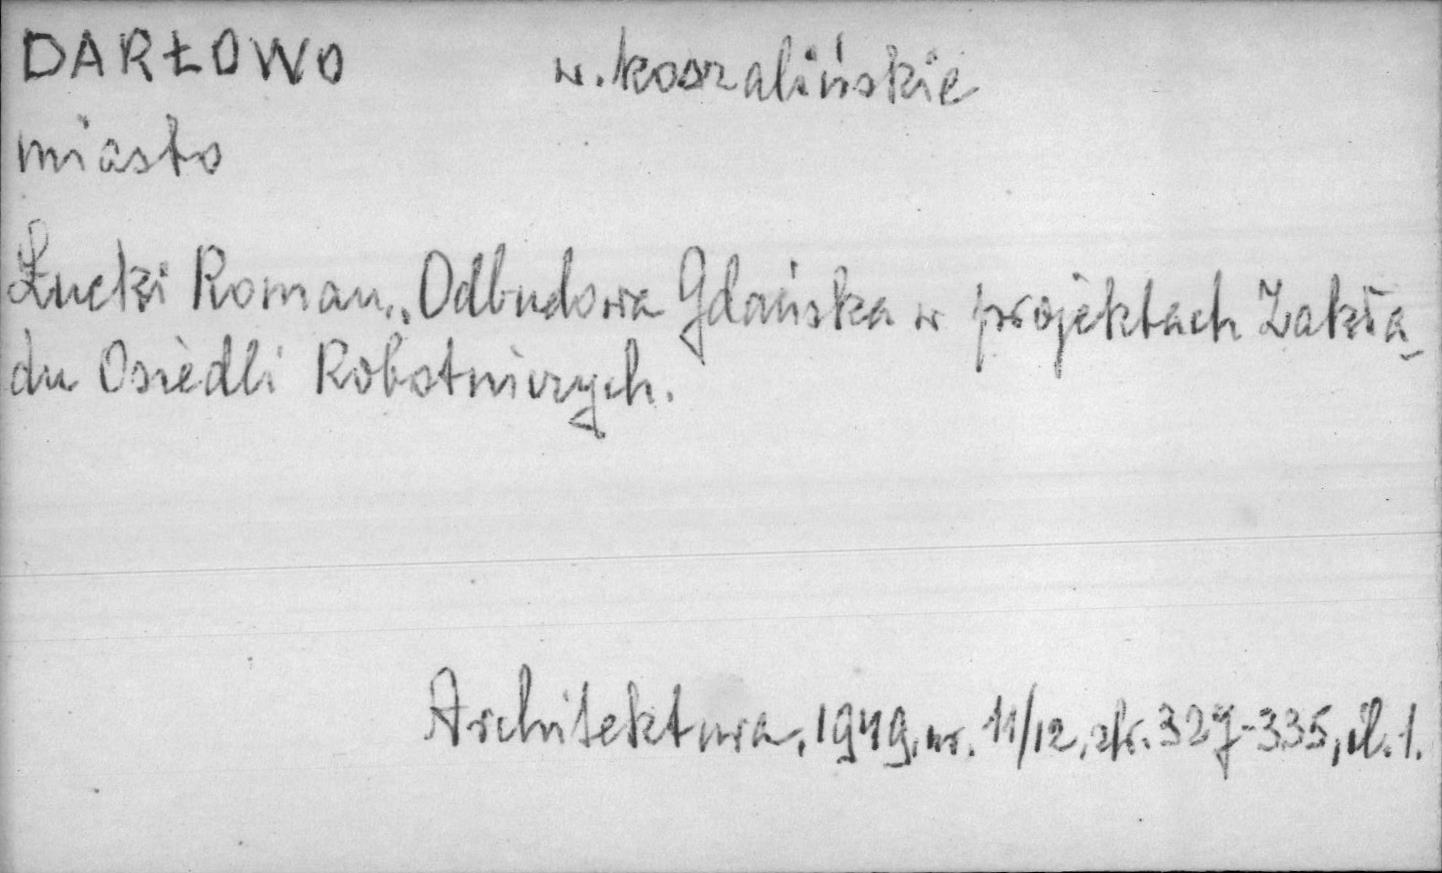 DARŁOWO w. koszalińskie
miasto
Łucki Roman, „Odbudowa Gdańska w projektach Zakła_
du Osiedli Robotniczych.
Architektura, 1949, nr. 11/12, str. 327-335, il. 1.